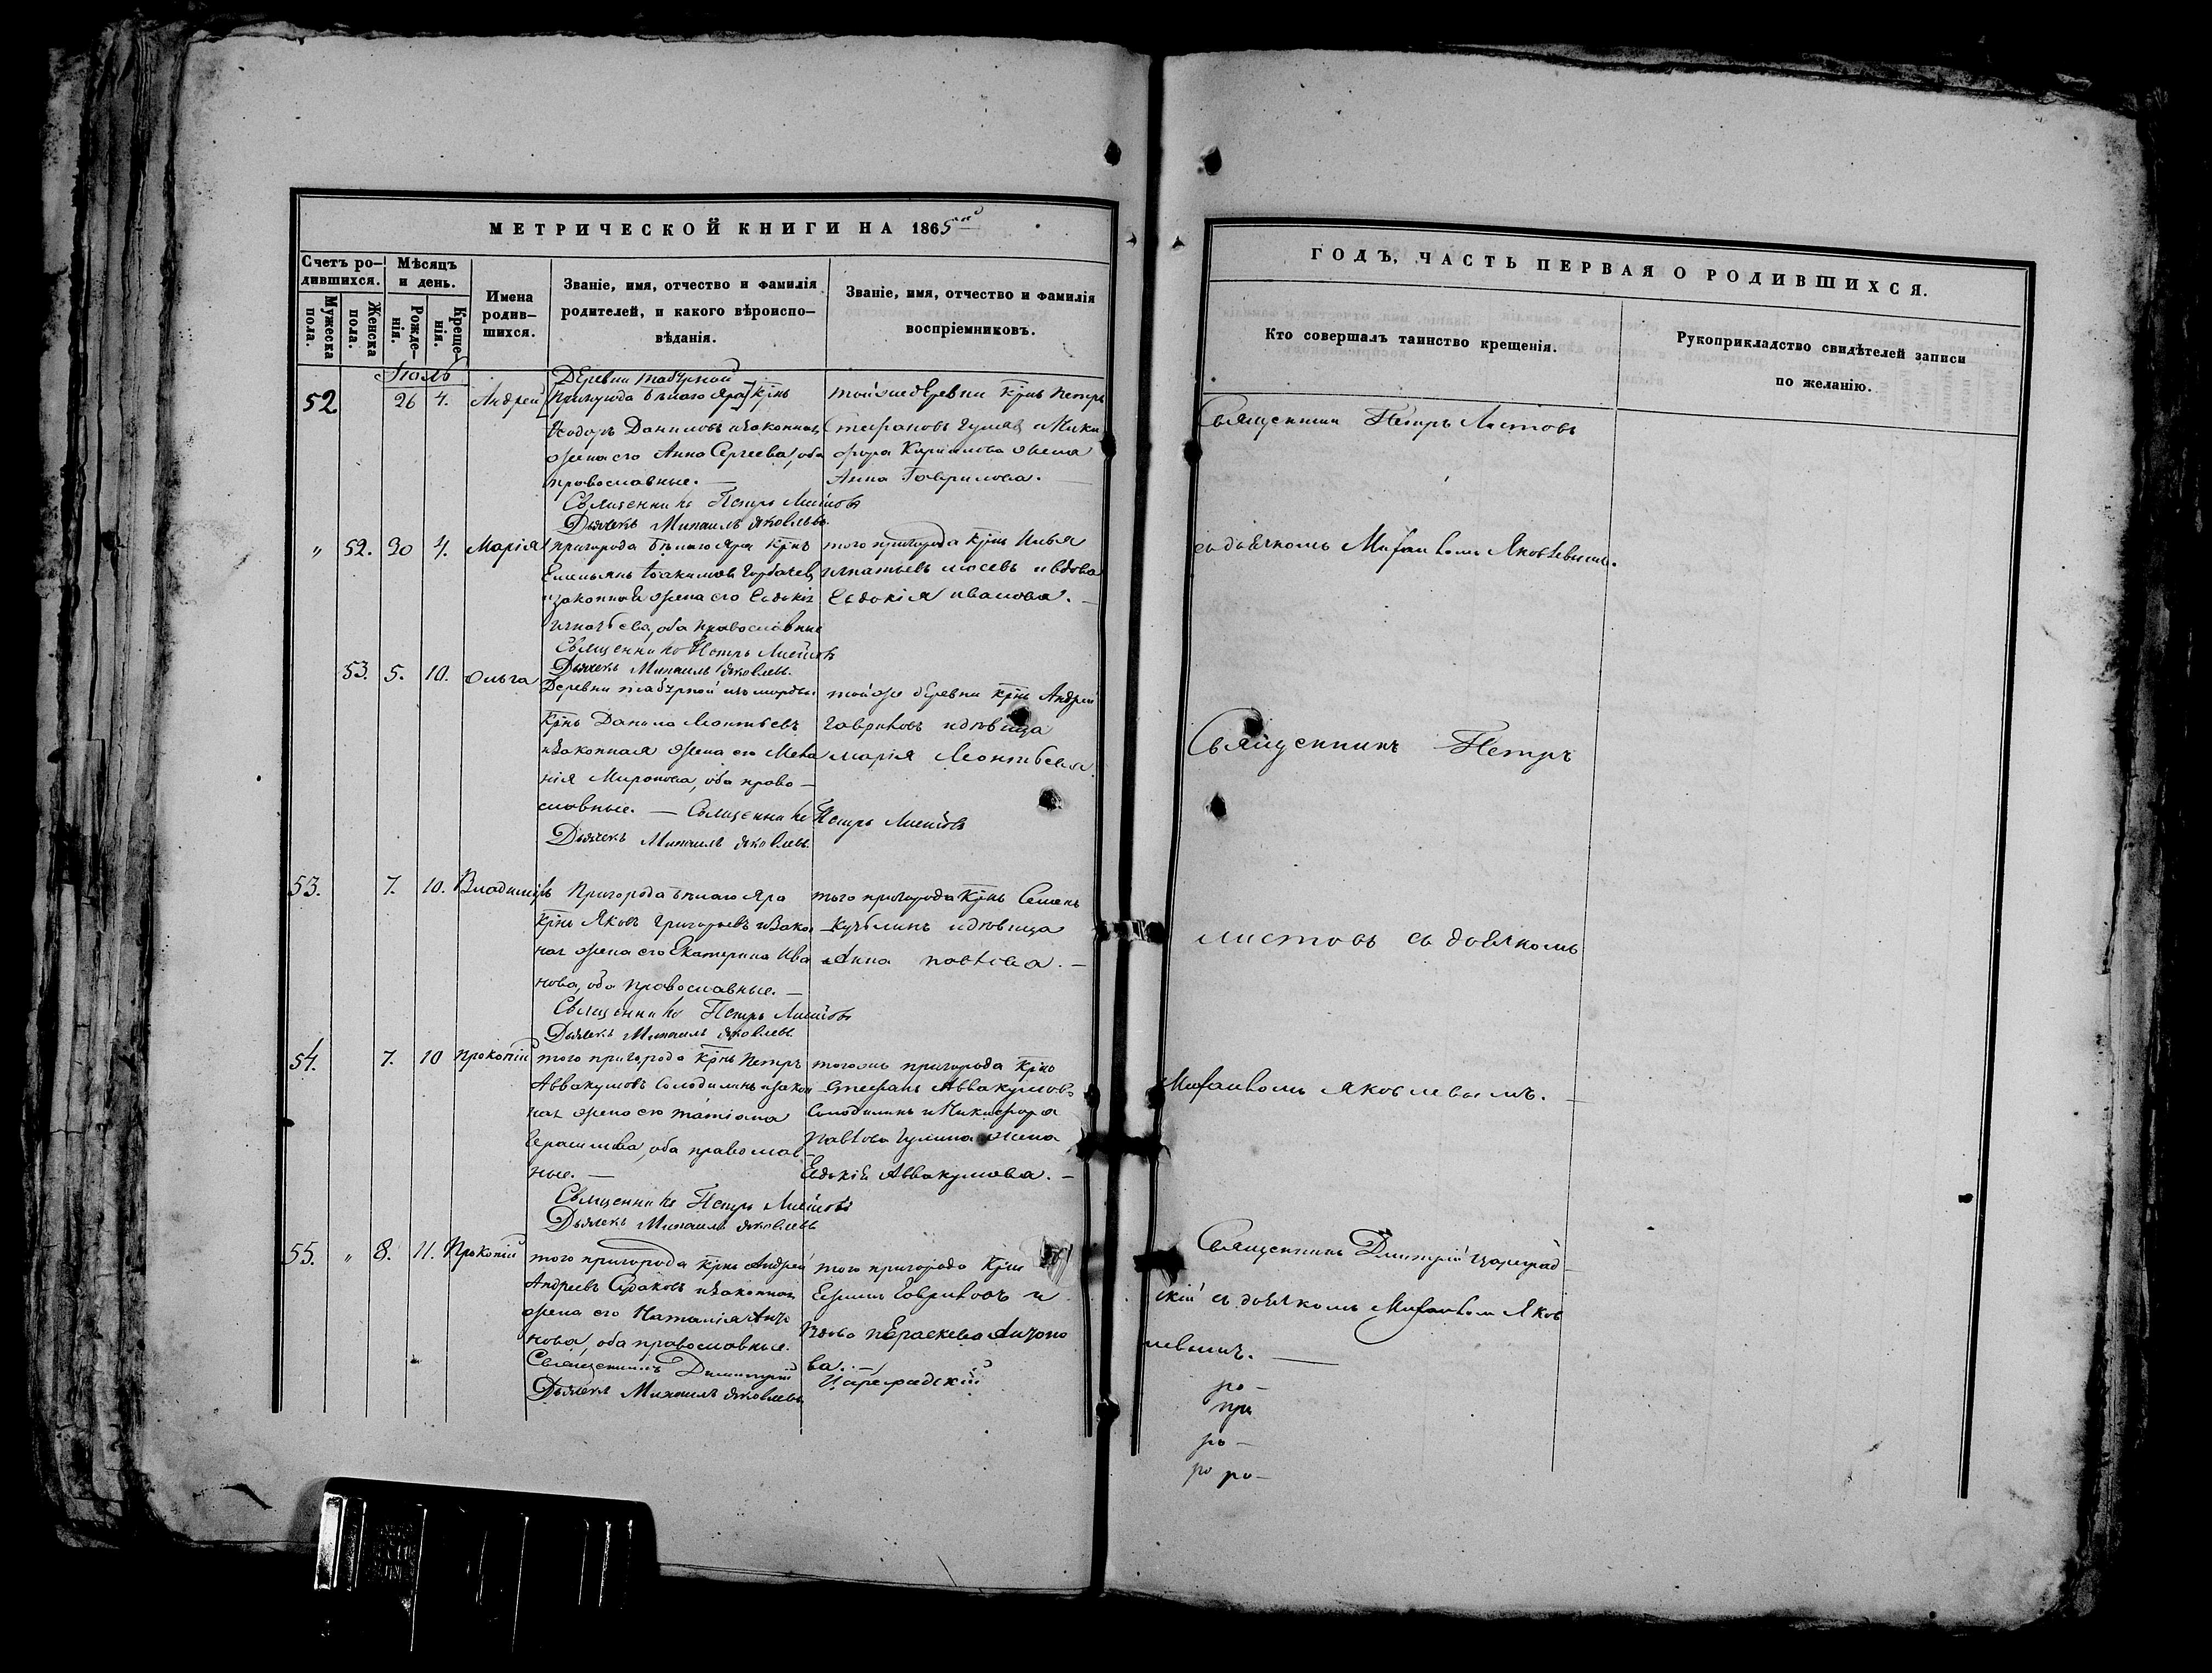 МЕТРИЧЕСКОЙ КНИГИ НА 1865
Счетъ ро-
дившихся.
Мужеска
пола.
Женска
пола.
Мѣсяцъ
и день.
Рожде-
нія.
Креще-
нія.
Имена
родив-
шихся.
Званіе, имя, отчество и фамилія
родителей, и какого вѣроиспо-
вѣданія.
Званіе, имя, отчество и фамилія
воспріемниковъ.
Іюль
52 26 4. Андрей
Деревни табурной
пригорода бѣлаго Яра крнъ
Ѳодоръ Даниловъ изаконная
жена его Анна Сергеева, оба
православные. —
Священникъ Петръ Листовъ
Дьячекъ Михаилъ Яковлевъ.
тойже деревни крнъ Петръ
Стефановъ
фора Кирилова жена
Анна Гаврилова.
" 52. 30 4. Марія
пригорода бѣлаго Яра крнъ
Емельянъ Іоакимовъ Горбачевъ
изаконная жена его Евдокія
Игнатьева, оба православные
Священникъ Петръ Листовъ
Дьячекъ Михаилъ Яковлевъ.
того пригорода крнъ Илья
Игнатьевъ ивдова
Евдокія иванова. —
53. 5. 10. Ольга
Деревни табурной измордвы
крнъ Данило Леонтьевъ
изаконная жена его Мела
нія Миронова, оба право-
славные. — Священникъ Петръ Листовъ
Дьячекъ Михаилъ Яковлевъ.
тойже деревни крнъ Андрей
Гавриловъ идѣвица
марія Леонтьева.
53. 7. 10. Владиміръ
Пригорода бѣлаго Яра
крнъ Яковъ Григорьевъ изакон
ная жена его Екатерина Ива
нова, оба православные. —
Священникъ Петръ Листовъ
Дьячекъ Михаилъ Яковлевъ.
того пригорода крнъ Семенъ
идѣвица
Анна павлова. —
54. 7. 10 Прокопій
того пригорода крнъ Петръ
Аввакумовъ Солодилинъ изакон
ная жена его татіана
Герасимова, оба православ-
ные. —
Священникъ Петръ Листовъ
Дьячекъ Михаилъ Яковлевъ
тогожъ пригорода крнъ
Стефанъ Аввакумовъ
Солодилинъ и Никифора
Павлова жена
Евдокія Аввакумова. —
55. " 8. 11. Прокопій
того пригорода крнъ Андрей
Андреевъ Судаковъ изаконная
жена его Наталія
нова, оба православные.
Священникъ Димитрій Цареградскій
Дьячекъ Михаилъ Яковлевъ
того пригорода крнъ
Ефимъ Гавриловъ и
вдова параскева Антоно
ва. —
ГОДЪ, ЧАСТЬ ПЕРВАЯ О РОДИВШИХСЯ.
Кто совершалъ таинство крещенія.
Рукоприкладство свидѣтелей записи
по желанію.
Священникъ Петръ Листовъ
съ дьячкомъ Михаиломъ Яковлевымъ.
Священникъ Петръ
Листовъ съ дьячкомъ
Михаиломъ Яковлевымъ. —
Священникъ Димитрій Цареград-
скій съ дьячкомъ Михаиломъ Яков
левымъ. —
ро-
при
ро-
ро ро-